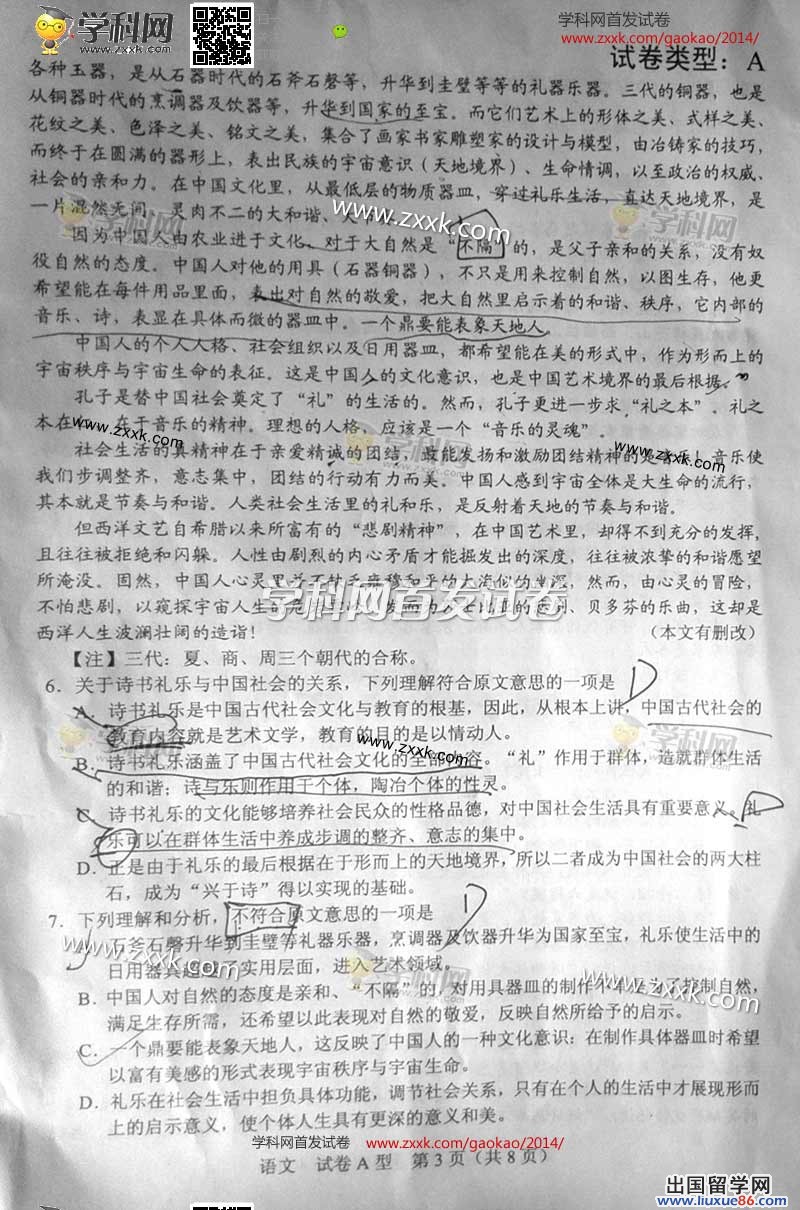 学科网
www.zxxk.com
学科网首发试卷
www.zxxk.com/gaokao/2014/
试卷类型：A
各种玉器，是从石器时代的石斧石磬等，升华到圭璧等等的礼器乐器。三代的铜器，也是
从铜器时代的烹调器及饮器等，升华到国家的至宝。而它们艺术上的形体之美、式样之美、
花纹之美、色泽之美、铭文之美，集合了画家书家雕塑家的设计与模型，由冶铸家的技巧，
而终于在圆满的器形上，表出民族的宇宙意识（天地境界）、生命情调，以至政治的权威、
社会的亲和力。在中国文化里，从最低层的物质器皿，穿过礼乐生活，直达天地境界，是
一片混然无间、灵肉不二的大和谐、大
www.zxxk.com
学科网
因为中国人由农业进于文化，对于大自然是“不隔”的，是父子亲和的关系，没有奴
役自然的态度。中国人对他的用具（石器铜器），不只是用来控制自然，以图生存，他更
希望能在每件用品里面，表出对自然的敬爱，把大自然里启示着的和谐、秩序，它内部的
音乐、诗，表显在具体而微的器皿中。一个鼎要能表象天地人。
中国人的个人人格、社会组织以及日用器皿，都希望能在美的形式中，作为形而上的
宇宙秩序与宇宙生命的表征。这是中国人的文化意识，也是中国艺术境界的最后根据。
孔子是替中国社会奠定了“礼”的生活的。然而，孔子更进一步求“礼之本”。礼之
本在，在于音乐的精神。理想的人格，应该是一个“音乐的灵魂”。
www.zxxk.com
学科网
www.zxxk.com
社会生活的真精神在于亲爱精诚的团结，最能发扬和激励团结精神的是音乐！音乐使
我们步调整齐，意志集中，团结的行动有力而美。中国人感到宇宙全体是大生命的流行，
其本就是节奏与和谐。人类社会生活里的礼和乐，是反射着天地的节奏与和谐。
但西洋文艺自希腊以来所富有的“悲剧精神”，在中国艺术里，却得不到充分的发挥，
且往往被拒绝和闪躲。人性由剧烈的内心矛盾才能掘发出的深度，往往被浓挚的和谐愿望
所淹没。固然，中国人心灵里并不缺乏雍穆和平的大海似的幽深，然而，由心灵的冒险，
不怕悲剧，以窥探宇宙人生的剧、贝多芬的乐曲，这却是
学科网首发试卷
西洋人生波澜壮阔的造诣！
（本文有删改）
【注】三代：夏、商、周三个朝代的合称。
6．关于诗书礼乐与中国社会的关系，下列理解符合原文意思的一项是
D
A．诗书礼乐是中国古代社会文化与教育的根基，因此，从根本上讲，中国古代社会的
教育内容就是艺术文学，教育的目的是以情动人。
www.zxxk.com
B．诗书礼乐涵盖了中国古代社会文化的全部内容。“礼”作用于群体，造就群体生活
的和谐；诗与乐则作用于个体，陶冶个体的性灵。
C．诗书礼乐的文化能够培养社会民众的性格品德，对中国社会生活具有重要意义。礼
乐可以在群体生活中养成步调的整齐、意志的集中。
D．正是由于礼乐的最后根据在于形而上的天地境界，所以二者成为中国社会的两大柱
石，成为“兴于诗”得以实现的基础。
7．下列理解和分析，不符合原文意思的一项是
D
石斧石磬升华到圭璧等礼器乐器，烹调器及饮器升华为国家至宝，礼乐使生活中的
日用器具超越了实用层面，进入艺术领域。
www.zxxk.com
学科网
www.zxxk.com
B．中国人对自然的态度是亲和、“不隔”的，对用具器皿的制作不只是为了控制自然，
满足生存所需，还希望以此表现对自然的敬爱，反映自然所给予的启示。
C．一个鼎要能表象天地人，这反映了中国人的一种文化意识：在制作具体器皿时希望
以富有美感的形式表现宇宙秩序与宇宙生命。
D．礼乐在社会生活中担负具体功能，调节社会关系，只有在个人的生活中才展现形而
上的启示意义，使个体人生具有更深的意义和美。
学科网首发试卷
www.zxxk.com/gaokao/2014/
语文 试卷A型 第3页（共8页）
出国留学网
www.liuxue86.com